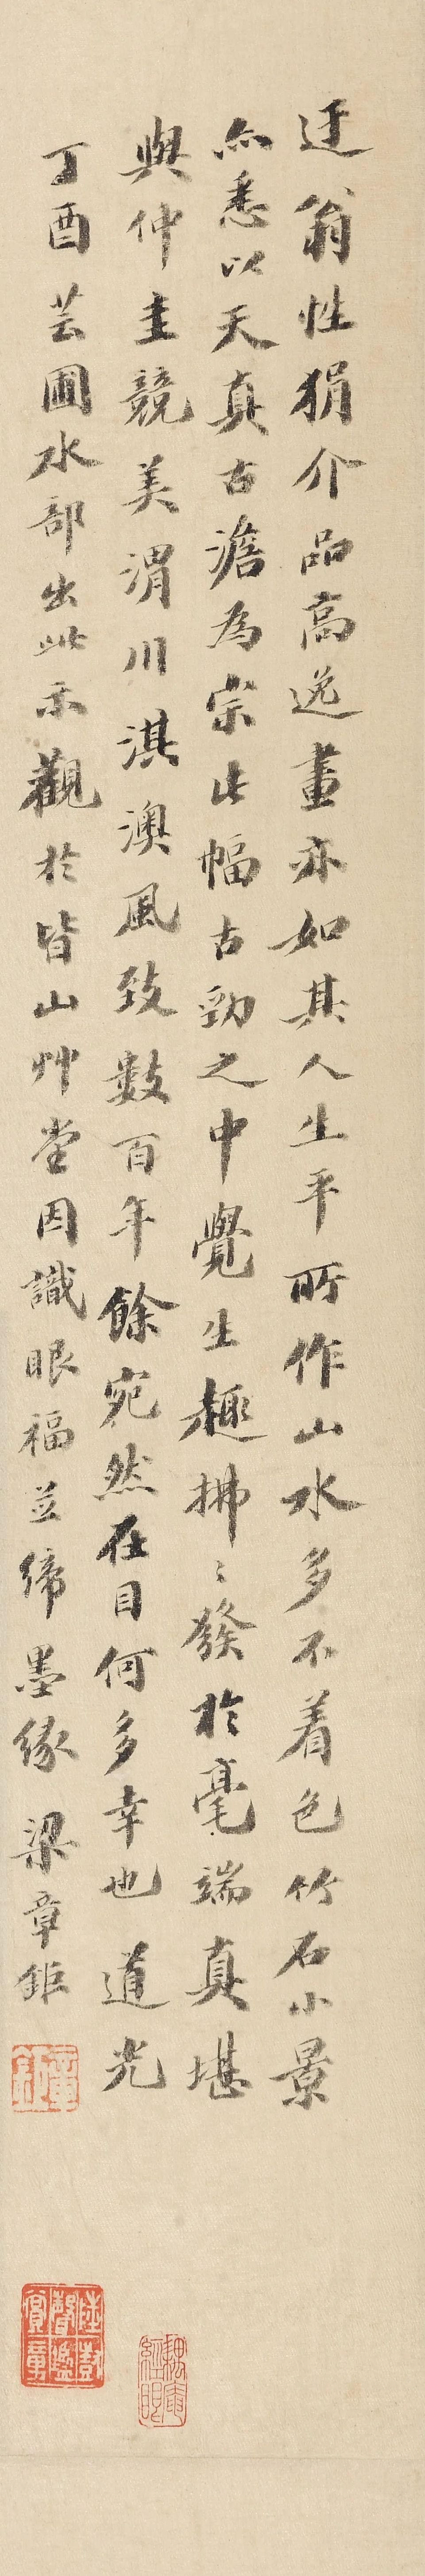 迂翁性狷介品高逸畫亦如其人生平所作山水多不着色竹石小景
亦悉以天真古澹為宗此幅古勁之中覺生趣拂〻發於毫端真堪
與仲圭競美渭川淇澳風致數百年餘宛然在目何多幸也道光
丁酉芸圃水部出此示觀於皆山艸堂因識眼福並締墨緣梁章鉅
章鉅
陸樹聲鑑賞章